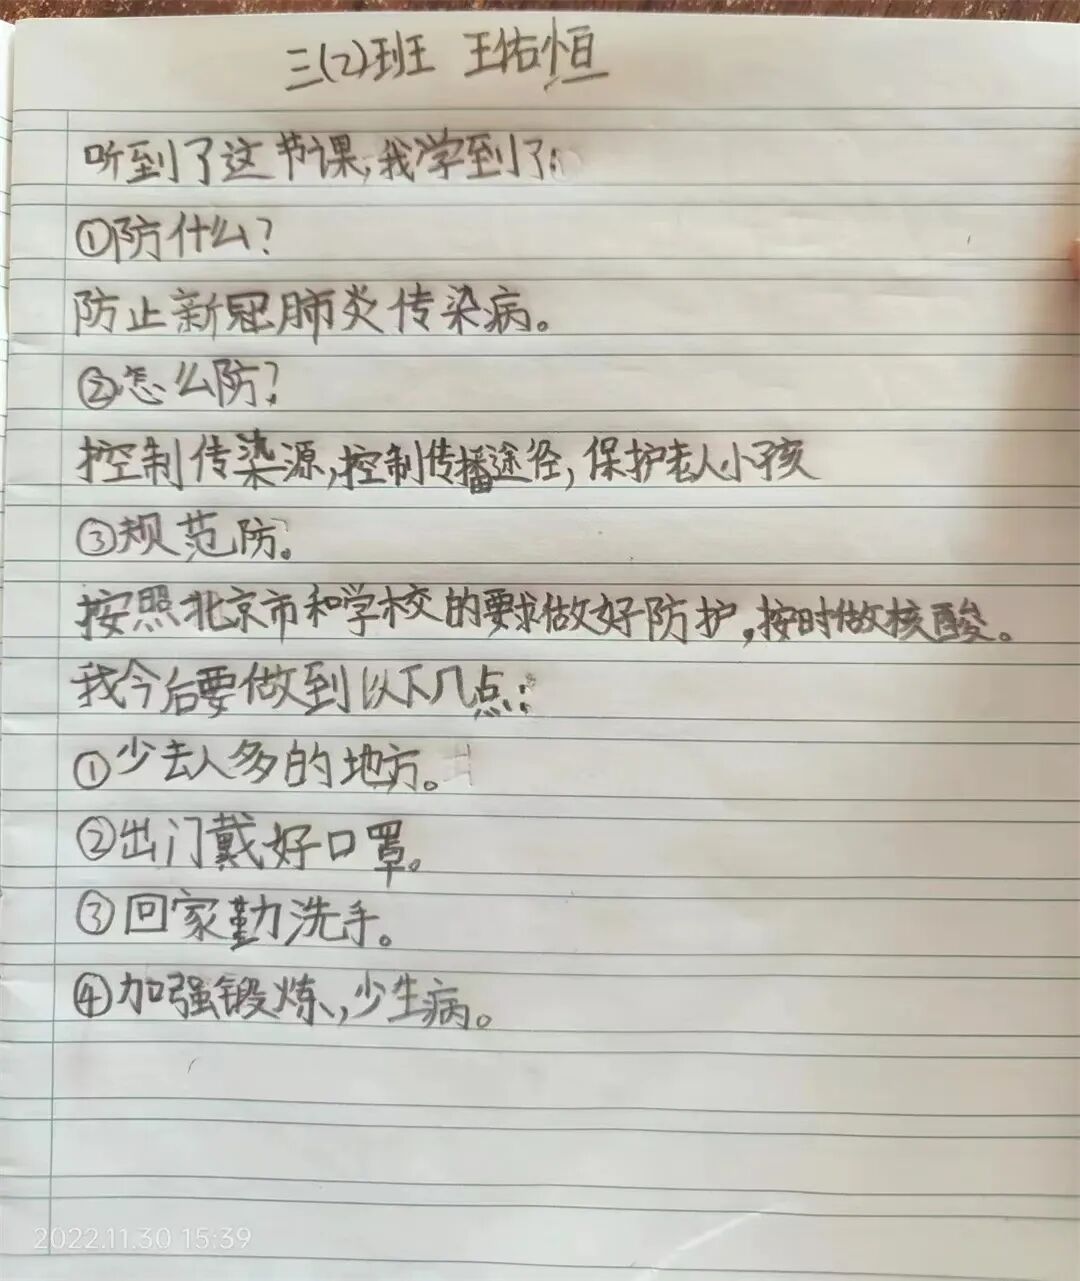 三(2)班 王佑恒
听到了这节课,我学到了:
①防什么?
防止新冠肺炎传染病。
②怎么防?
控制传染源,控制传播途径,保护老人小孩
③规范防。
按照北京市和学校的要求做好防护,按时做核酸。
我今后要做到以下几点:
①少去人多的地方。
②出门戴好口罩。
③回家勤洗手。
④加强锻炼,少生病。
2022.11.30 15:39